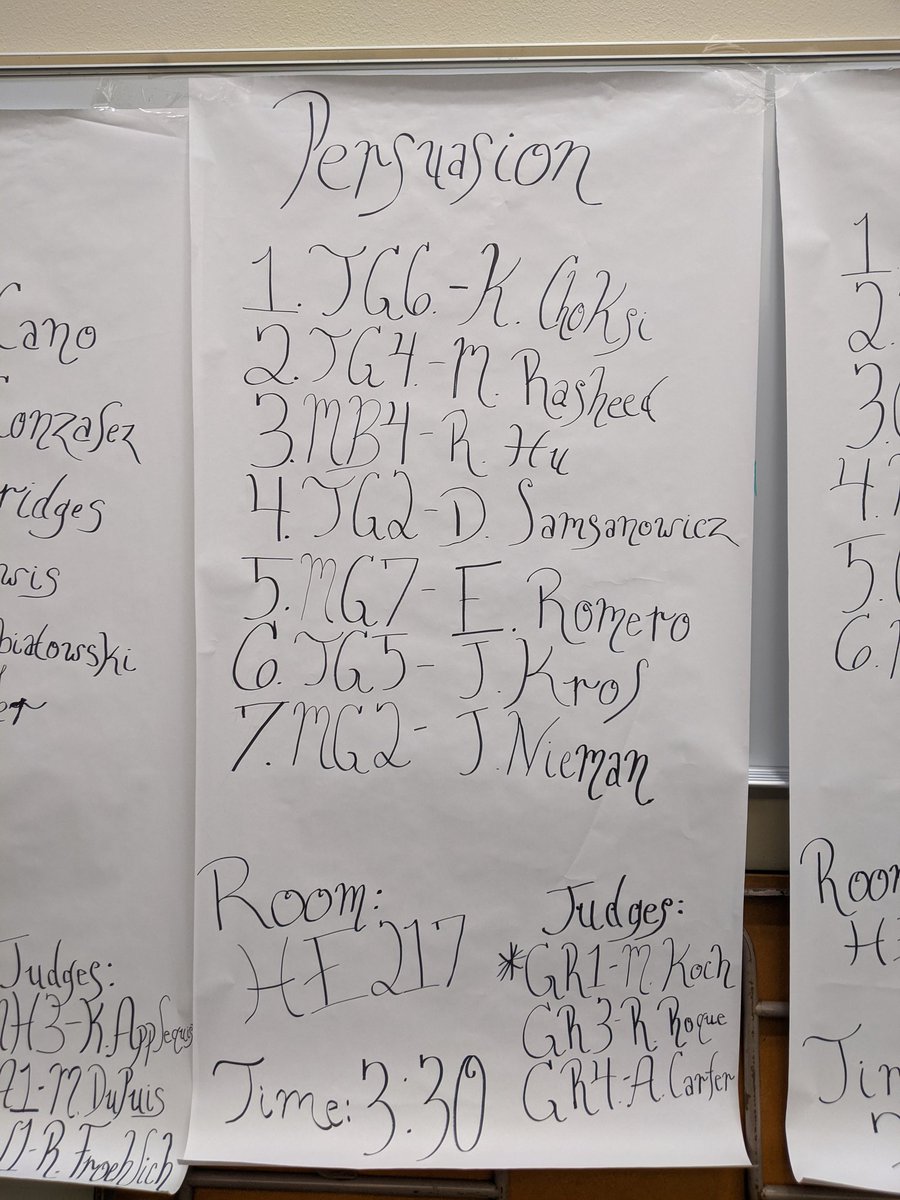 Persuasion
1. JG6.-K. Choksi
2. JG4.-M. Rasheed
3. MB4-R. Hu
4. JG2-D. Samsanowicz
5. MG7-E. Romero
6. JG5-J. Kros
7. MG2-J. Nieman
Room:
HE 217
Time: 3:30
Judges:
*GR1-M. Koch
GR3-R. Roque
GR4-A. Carter
Cano
Gonzalez
ridges
wis
biatowski
er
Judges:
H3-K. Applequis
A1-M. DuPuis
1-R. Froehlich
1
2.
3.
4.
5.
6.
Room
H
Tim